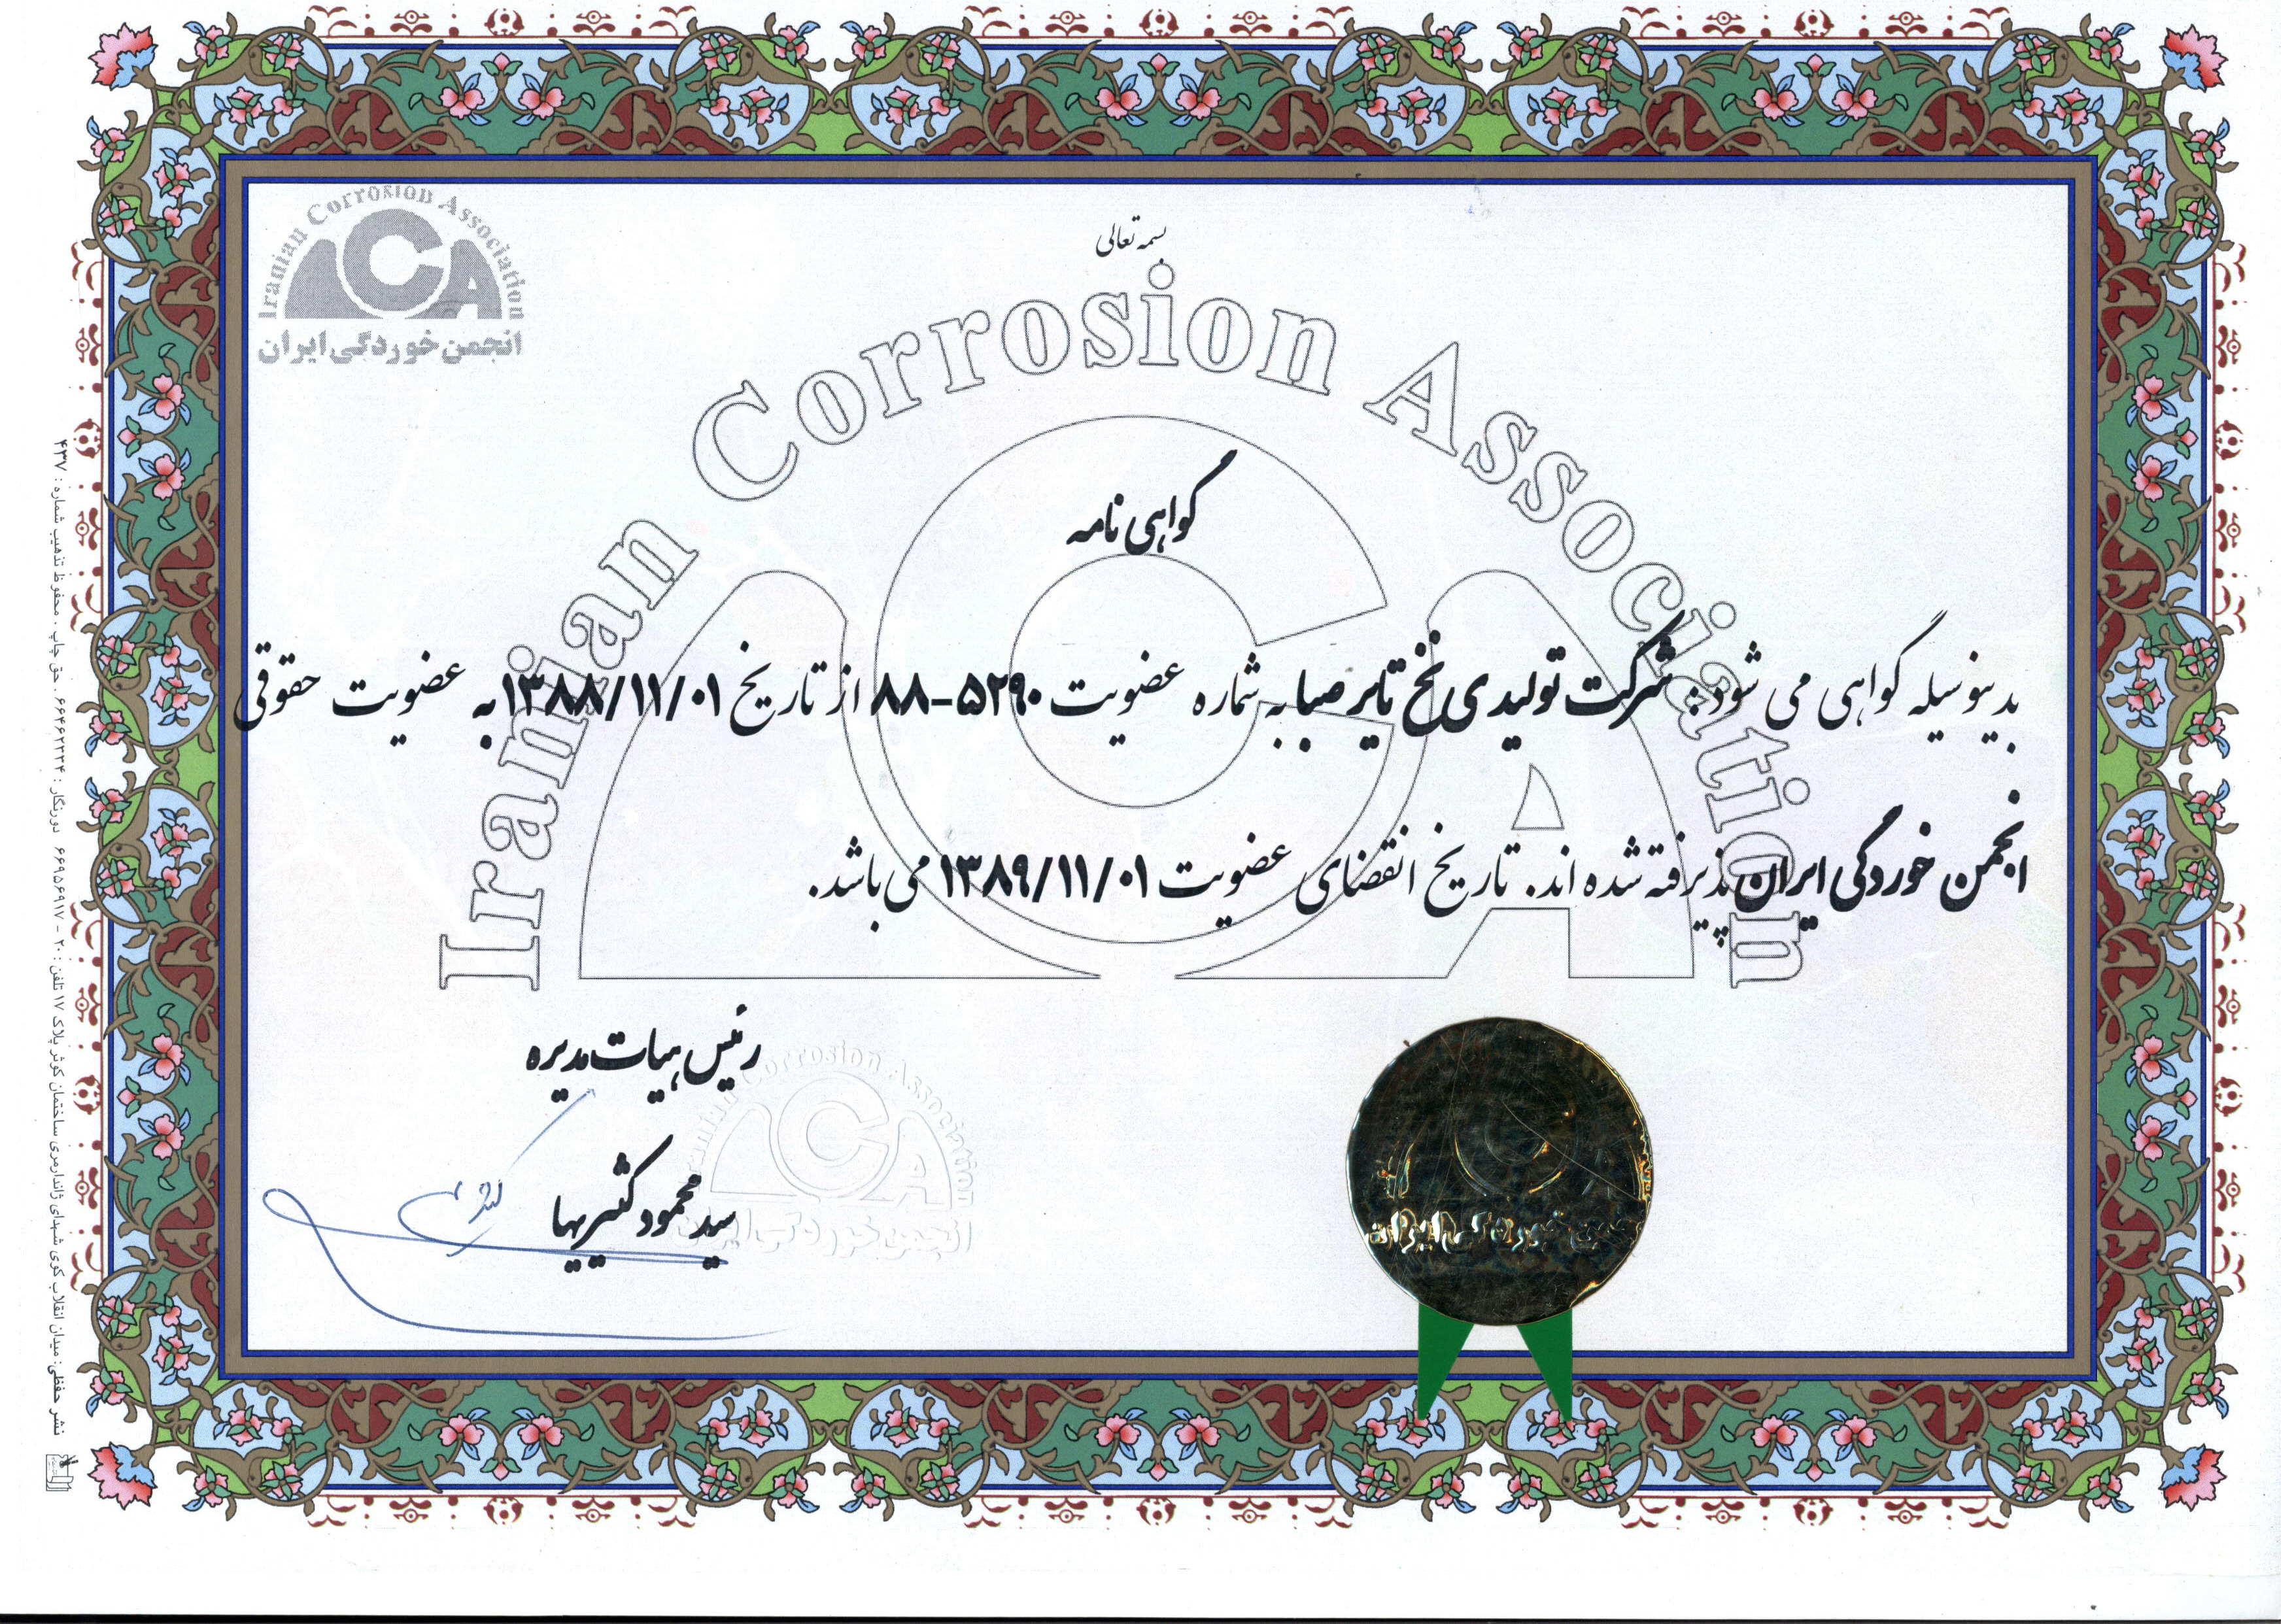 بسمه تعالی
Iranian Corrosion Association
ICA
انجمن خوردگی ایران
Iranian Corrosion Association
گواهی نامه
بدینوسیله گواهی می شود: شرکت تولیدی نخ تایر صبا به شماره عضویت ۵۲۹۰-۸۸ از تاریخ ۱۳۸۸/۱۱/۰۱ به عضویت حقوقی
انجمن خوردگی ایران پذیرفته شده اند. تاریخ انقضای عضویت ۱۳۸۹/۱۱/۰۱ می باشد.
رئیس هیات مدیره
سید محمود کثیریها
Iranian Corrosion Association
ICA
انجمن خوردگی ایران
انجمن خوردگی ایران
نشر حفظی: میدان انقلاب کوی شهدای ژاندارمری ساختمان کوثر پلاک ۱۷ تلفن: ۲۰ - ۶۶۹۵۶۹۱۷ دورنگار: ۶۶۴۶۲۳۳۴ . حق چاپ . محفوظ تذهیب شماره: ۴۳۷